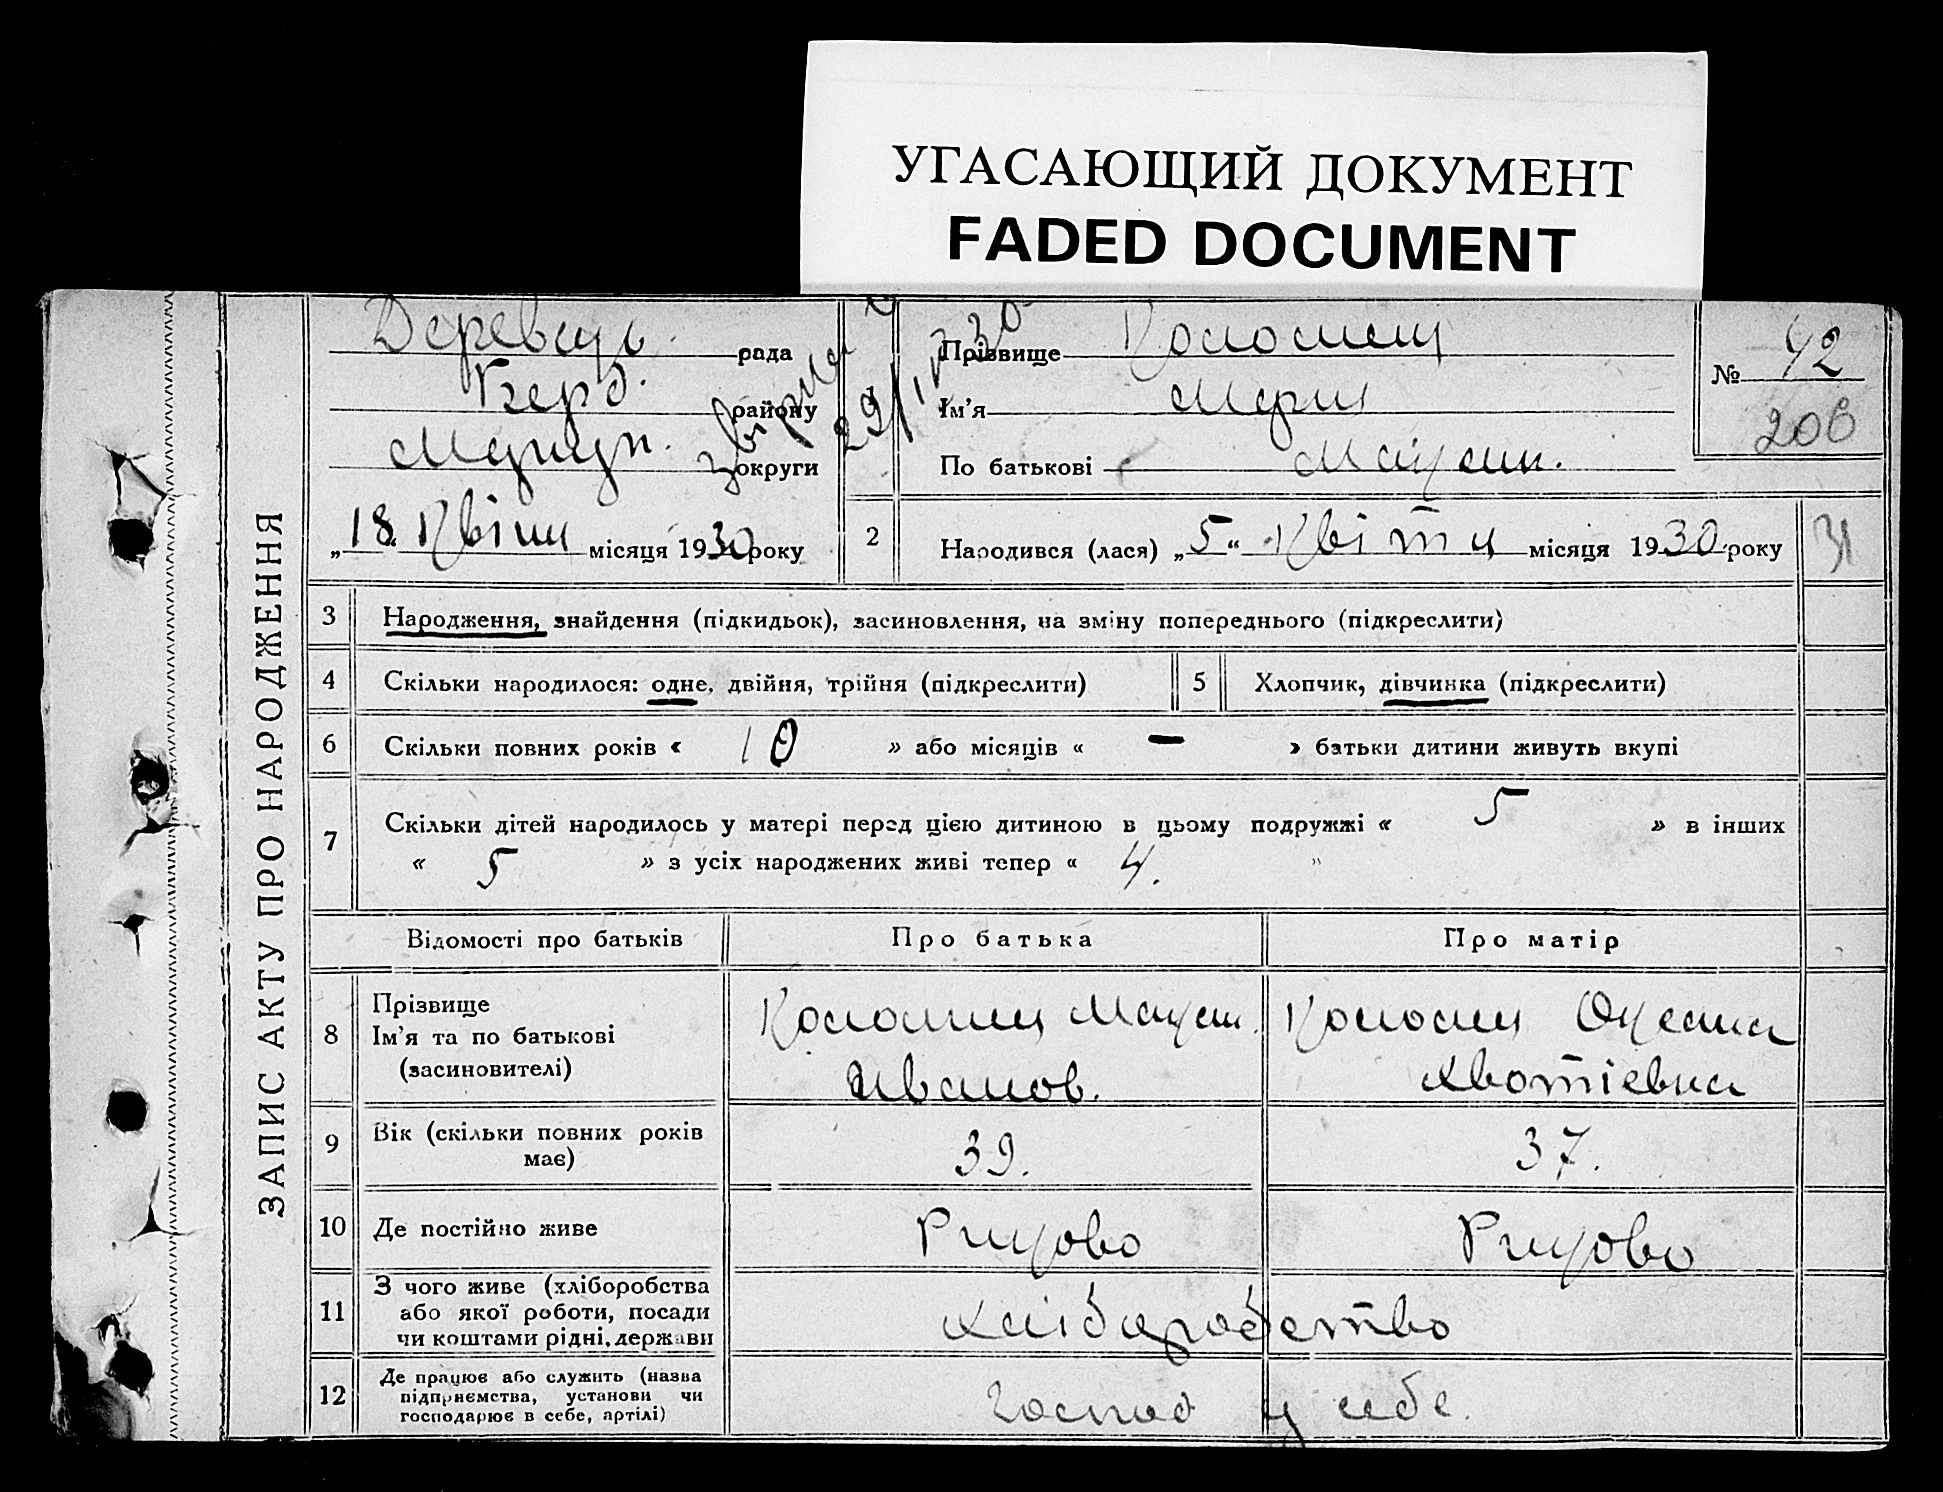 УГАСАЮЩИЙ ДОКУМЕНТ
FADED DOCUMENT
ЗАПИС АКТУ ПРО НАРОДЖЕННЯ
рада
Берд. району
Маріуп. округи
„18“ Квітня місяця 1930 року
Прізвище Коломиец
Ім'я Мария
По батькові Максим.
№ 42
206
2 Народився (лася) „5“ Квітня місяця 1930 року
3 Народження, знайдення (підкидьок), засиновлення, на зміну попереднього (підкреслити)
4 Скільки народилося: одне, двійня, трійня (підкреслити)
5 Хлопчик, дівчинка (підкреслити)
6 Скільки повних років « 10 » або місяців « — » батьки дитини живуть вкупі
7 Скільки дітей народилось у матері перед цією дитиною в цьому подружжі « 5 » в інших
« 5 » з усіх народжених живі тепер « 4. »
Відомості про батьків Про батька Про матір
8 Прізвище
Ім'я та по батькові
(засиновителі)
Коломиец Максим
Иванов.
Коломиец
9 Вік (скільки повних років
має)
39. 37.
10 Де постійно живе
11 З чого живе (хліборобства
або якої роботи, посади
чи коштами рідні, держави
хліборобство
12 Де працює або служить (назва
підприємства, установи чи
господарює в себе, артілі)
господ у себе.